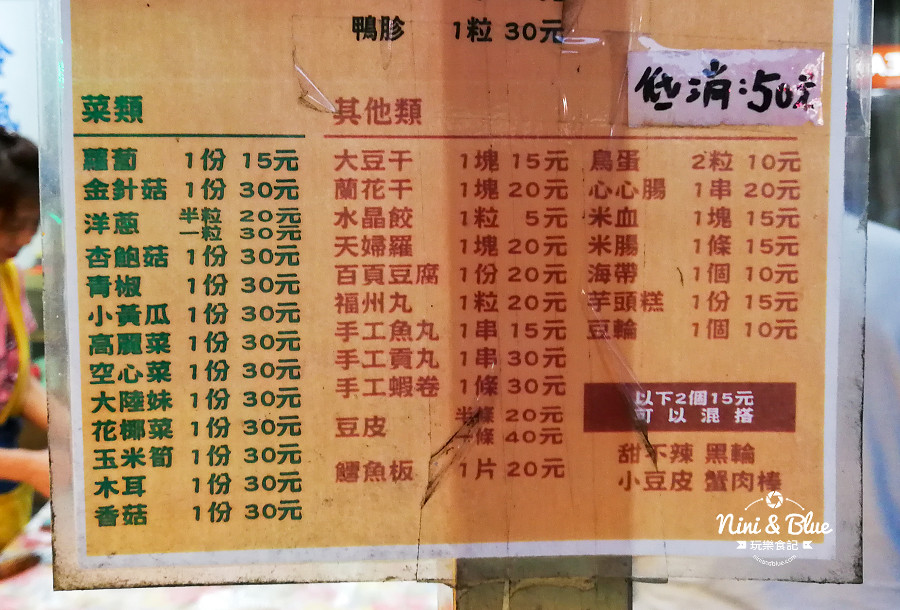 鴨胗 1粒 30元
低消:50元
菜類
蘿蔔 1份 15元
金針菇 1份 30元
洋蔥 半粒 20元
一粒 30元
杏鮑菇 1份 30元
青椒 1份 30元
小黃瓜 1份 30元
高麗菜 1份 30元
空心菜 1份 30元
大陸妹 1份 30元
花椰菜 1份 30元
玉米筍 1份 30元
木耳 1份 30元
香菇 1份 30元
其他類
大豆干 1塊 15元
蘭花干 1塊 20元
水晶餃 1粒 5元
天婦羅 1塊 20元
百頁豆腐 1份 20元
福州丸 1粒 20元
手工魚丸 1串 15元
手工貢丸 1串 30元
手工蝦卷 1條 30元
豆皮 半條 20元
一條 40元
鱈魚板 1片 20元
鳥蛋 2粒 10元
心心腸 1串 20元
米血 1塊 15元
米腸 1條 15元
海帶 1個 10元
芋頭糕 1份 15元
豆輪 1個 10元
以下2個15元
可以混搭
甜不辣 黑輪
小豆皮 蟹肉棒
Nini & Blue
玩樂食記
niniandblue.com